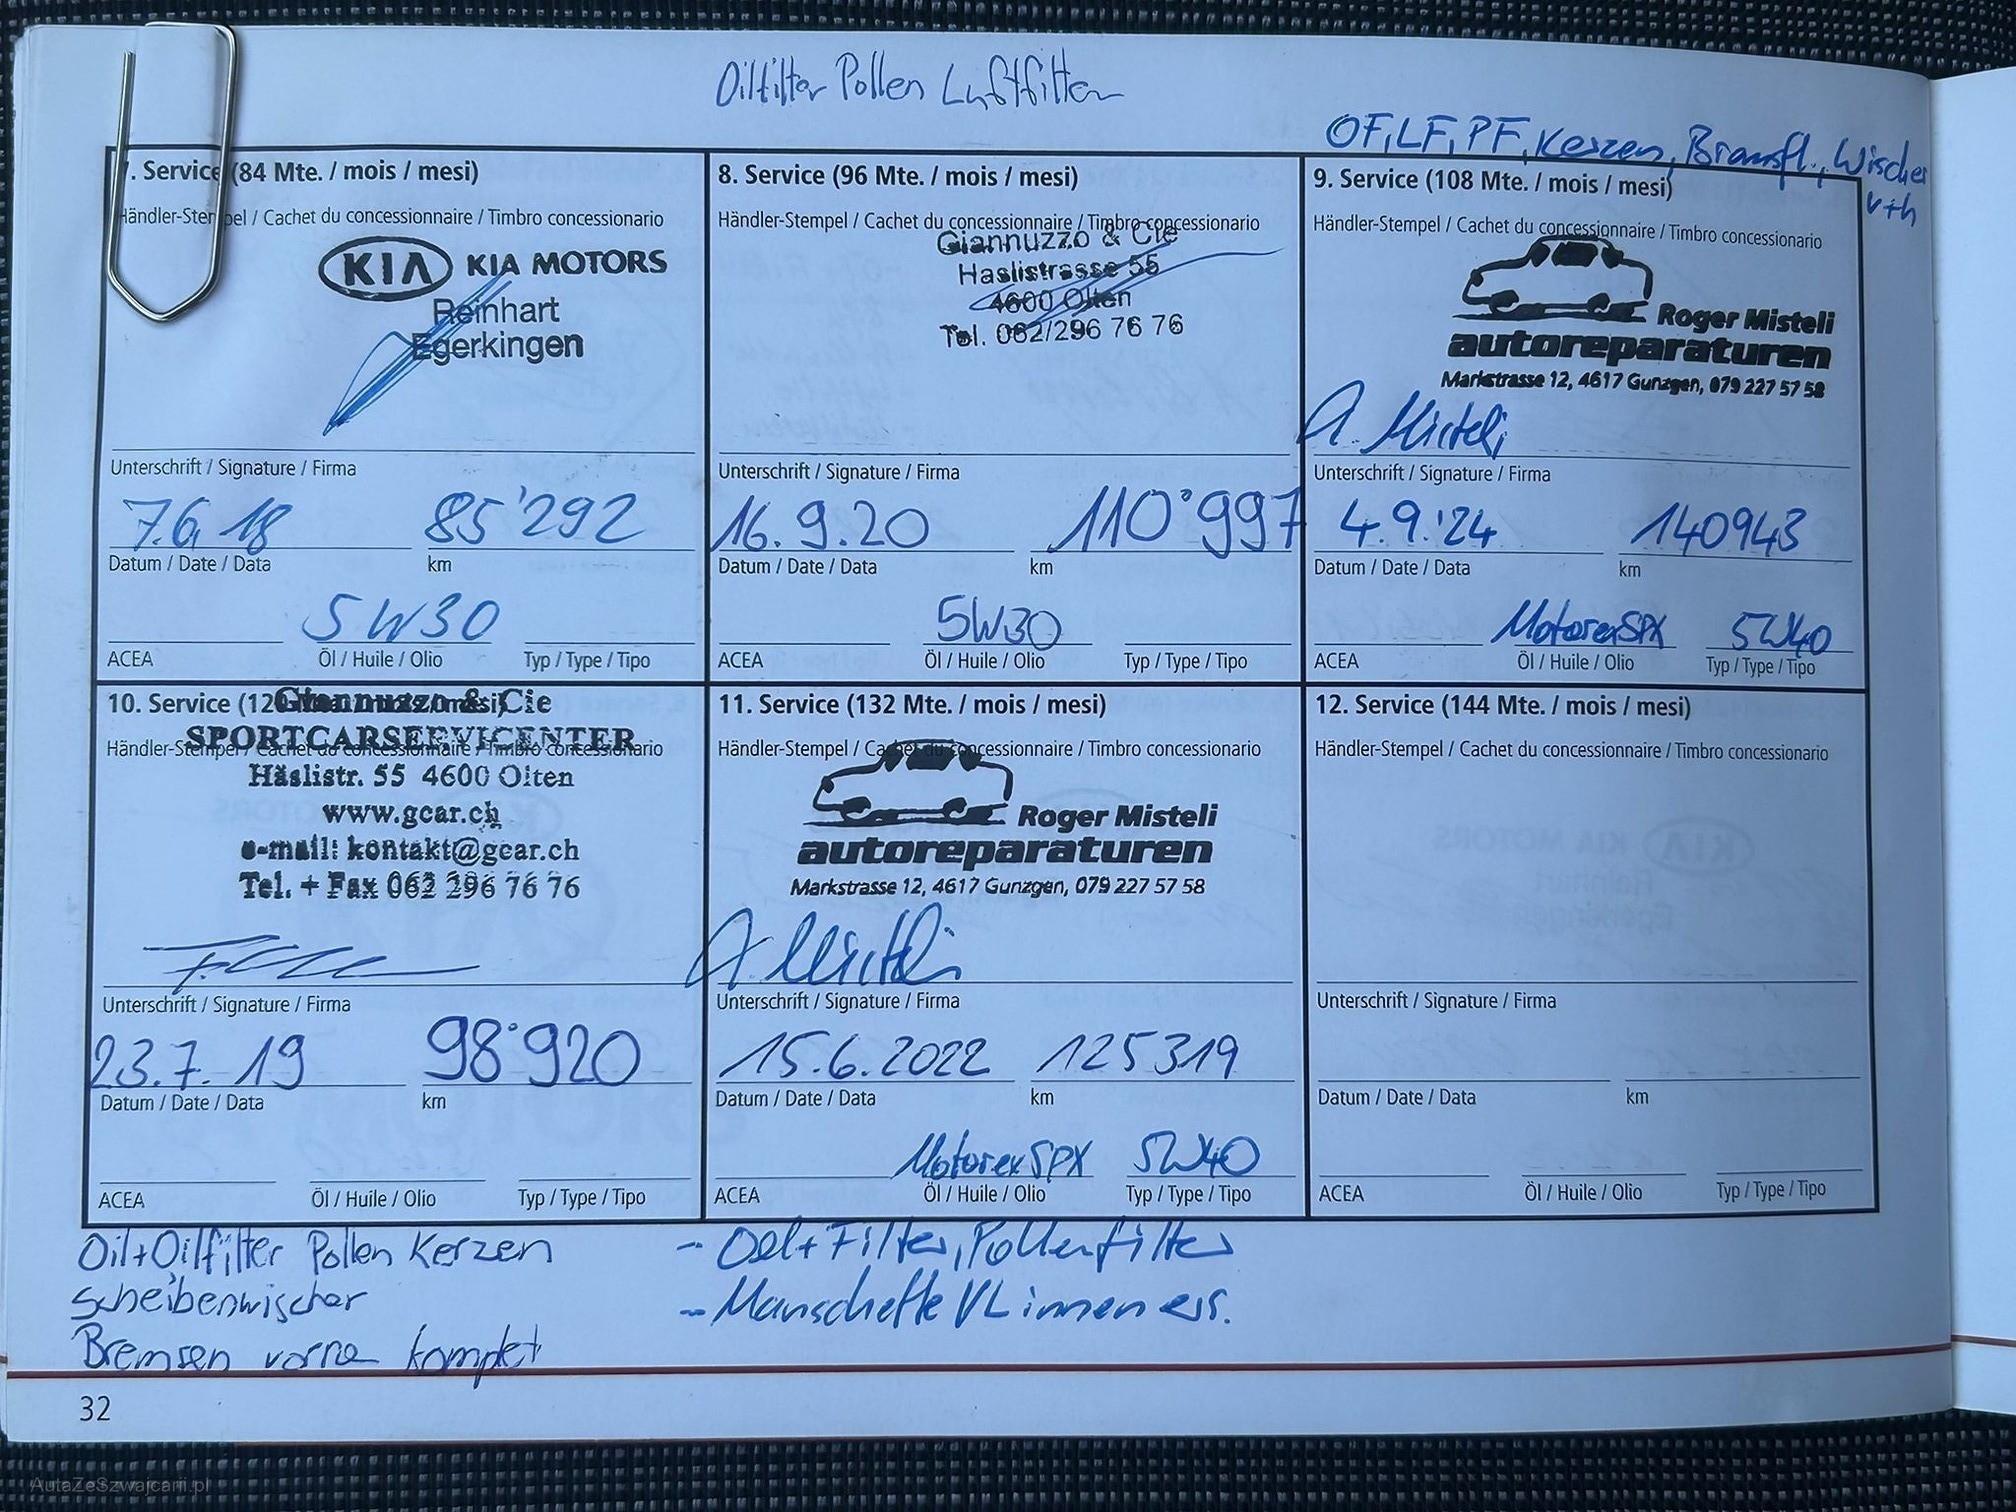 Oilfilter Pollen Luftfilter
OF, LF, PF, Kerzen, Bremsfl., Wischer
v+h
7. Service (84 Mte. / mois / mesi)
Händler-Stempel / Cachet du concessionnaire / Timbro concessionario
KIA KIA MOTORS
Reinhart
Egerkingen
Unterschrift / Signature / Firma
7.6.18 85'292
Datum / Date / Data km
5W30
ACEA Öl / Huile / Olio Typ / Type / Tipo
8. Service (96 Mte. / mois / mesi)
Händler-Stempel / Cachet du concessionnaire / Timbro concessionario
Giannuzzo & Cie
Haslistrasse 55
4600 Olten
Tel. 062/296 76 76
Unterschrift / Signature / Firma
16.9.20 110'997
Datum / Date / Data km
5W30
ACEA Öl / Huile / Olio Typ / Type / Tipo
9. Service (108 Mte. / mois / mesi)
Händler-Stempel / Cachet du concessionnaire / Timbro concessionario
Roger Misteli
autoreparaturen
Markstrasse 12, 4617 Gunzgen, 079 227 57 58
A. Misteli
Unterschrift / Signature / Firma
4.9.'24 140943
Datum / Date / Data km
Motorex SPX 5W40
ACEA Öl / Huile / Olio Typ / Type / Tipo
10. Service (120 Mte. / mois / mesi)
Giannuzzo & Cie
SPORTCARSERVICENTER
Händler-Stempel / Cachet du concessionnaire / Timbro concessionario
Häslistr. 55 4600 Olten
www.gcar.ch
e-mail: kontakt@gcar.ch
Tel. + Fax 062 296 76 76
Unterschrift / Signature / Firma
23.7.19 98'920
Datum / Date / Data km
ACEA Öl / Huile / Olio Typ / Type / Tipo
11. Service (132 Mte. / mois / mesi)
Händler-Stempel / Cachet du concessionnaire / Timbro concessionario
Roger Misteli
autoreparaturen
Markstrasse 12, 4617 Gunzgen, 079 227 57 58
A. Misteli
Unterschrift / Signature / Firma
15.6.2022 125319
Datum / Date / Data km
Motorex SPX 5W40
ACEA Öl / Huile / Olio Typ / Type / Tipo
12. Service (144 Mte. / mois / mesi)
Händler-Stempel / Cachet du concessionnaire / Timbro concessionario
Unterschrift / Signature / Firma
Datum / Date / Data km
ACEA Öl / Huile / Olio Typ / Type / Tipo
Oil+Oilfilter Pollen Kerzen
Scheibenwischer
Bremsen vorne komplet
- Oel+Filter, Pollenfilter
- Manschette VL innen ers.
32
AutaZeSzwajcarii.pl